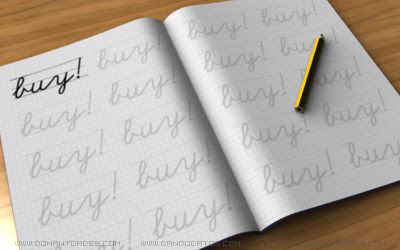 buy! buy!
buy! buy!
buy! buy!
buy! buy!
buy! buy!
buy! buy!
buy! buy!
buy! buy!
buy! buy!
buy! buy!
WWW.DONANTDADES.COM WWW.DANDODATOS.COM